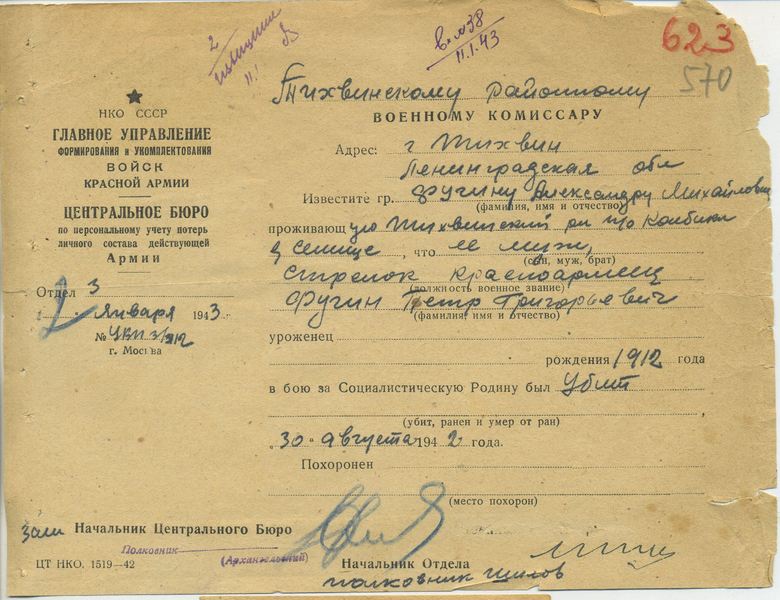 2
вх. №38
11.I.43
623
570
НКО СССР
ГЛАВНОЕ УПРАВЛЕНИЕ
ФОРМИРОВАНИЯ и УКОМПЛЕКТОВАНИЯ
ВОЙСК
КРАСНОЙ АРМИИ
ЦЕНТРАЛЬНОЕ БЮРО
по персональному учету потерь
личного состава действующей
Армии
Отдел 3
2 января 1943 г.
№
г. Москва
Тихвинскому районному
ВОЕННОМУ КОМИССАРУ
Адрес: г Тихвин
Ленинградская обл
Известите гр. Фугину Александру Михайловн
(фамилия, имя и отчество)
проживающ ую Тихвинский р-н
что её муж,
(сын, муж, брат)
стрелок красноармеец
(должность военное звание)
Фугин Петр Григорьевич
(фамилия, имя и отчество)
уроженец
рождения 1912 года
в бою за Социалистическую Родину был Убит
(убит, ранен и умер от ран)
„30" августа 1942 года.
Похоронен
(место похорон)
Зам Начальник Центрального Бюро
Полковник
(Архангельский)
Начальник Отдела
полковник Шилов
ЦТ НКО. 1519—42